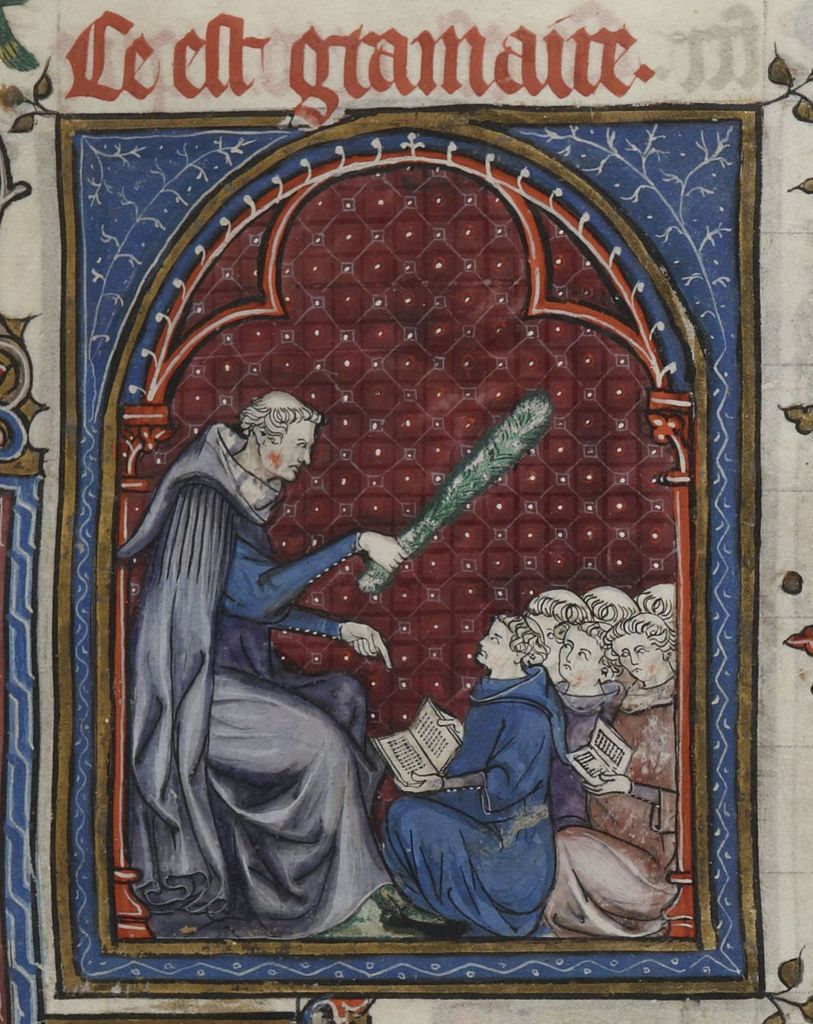 Ce est gramaire.